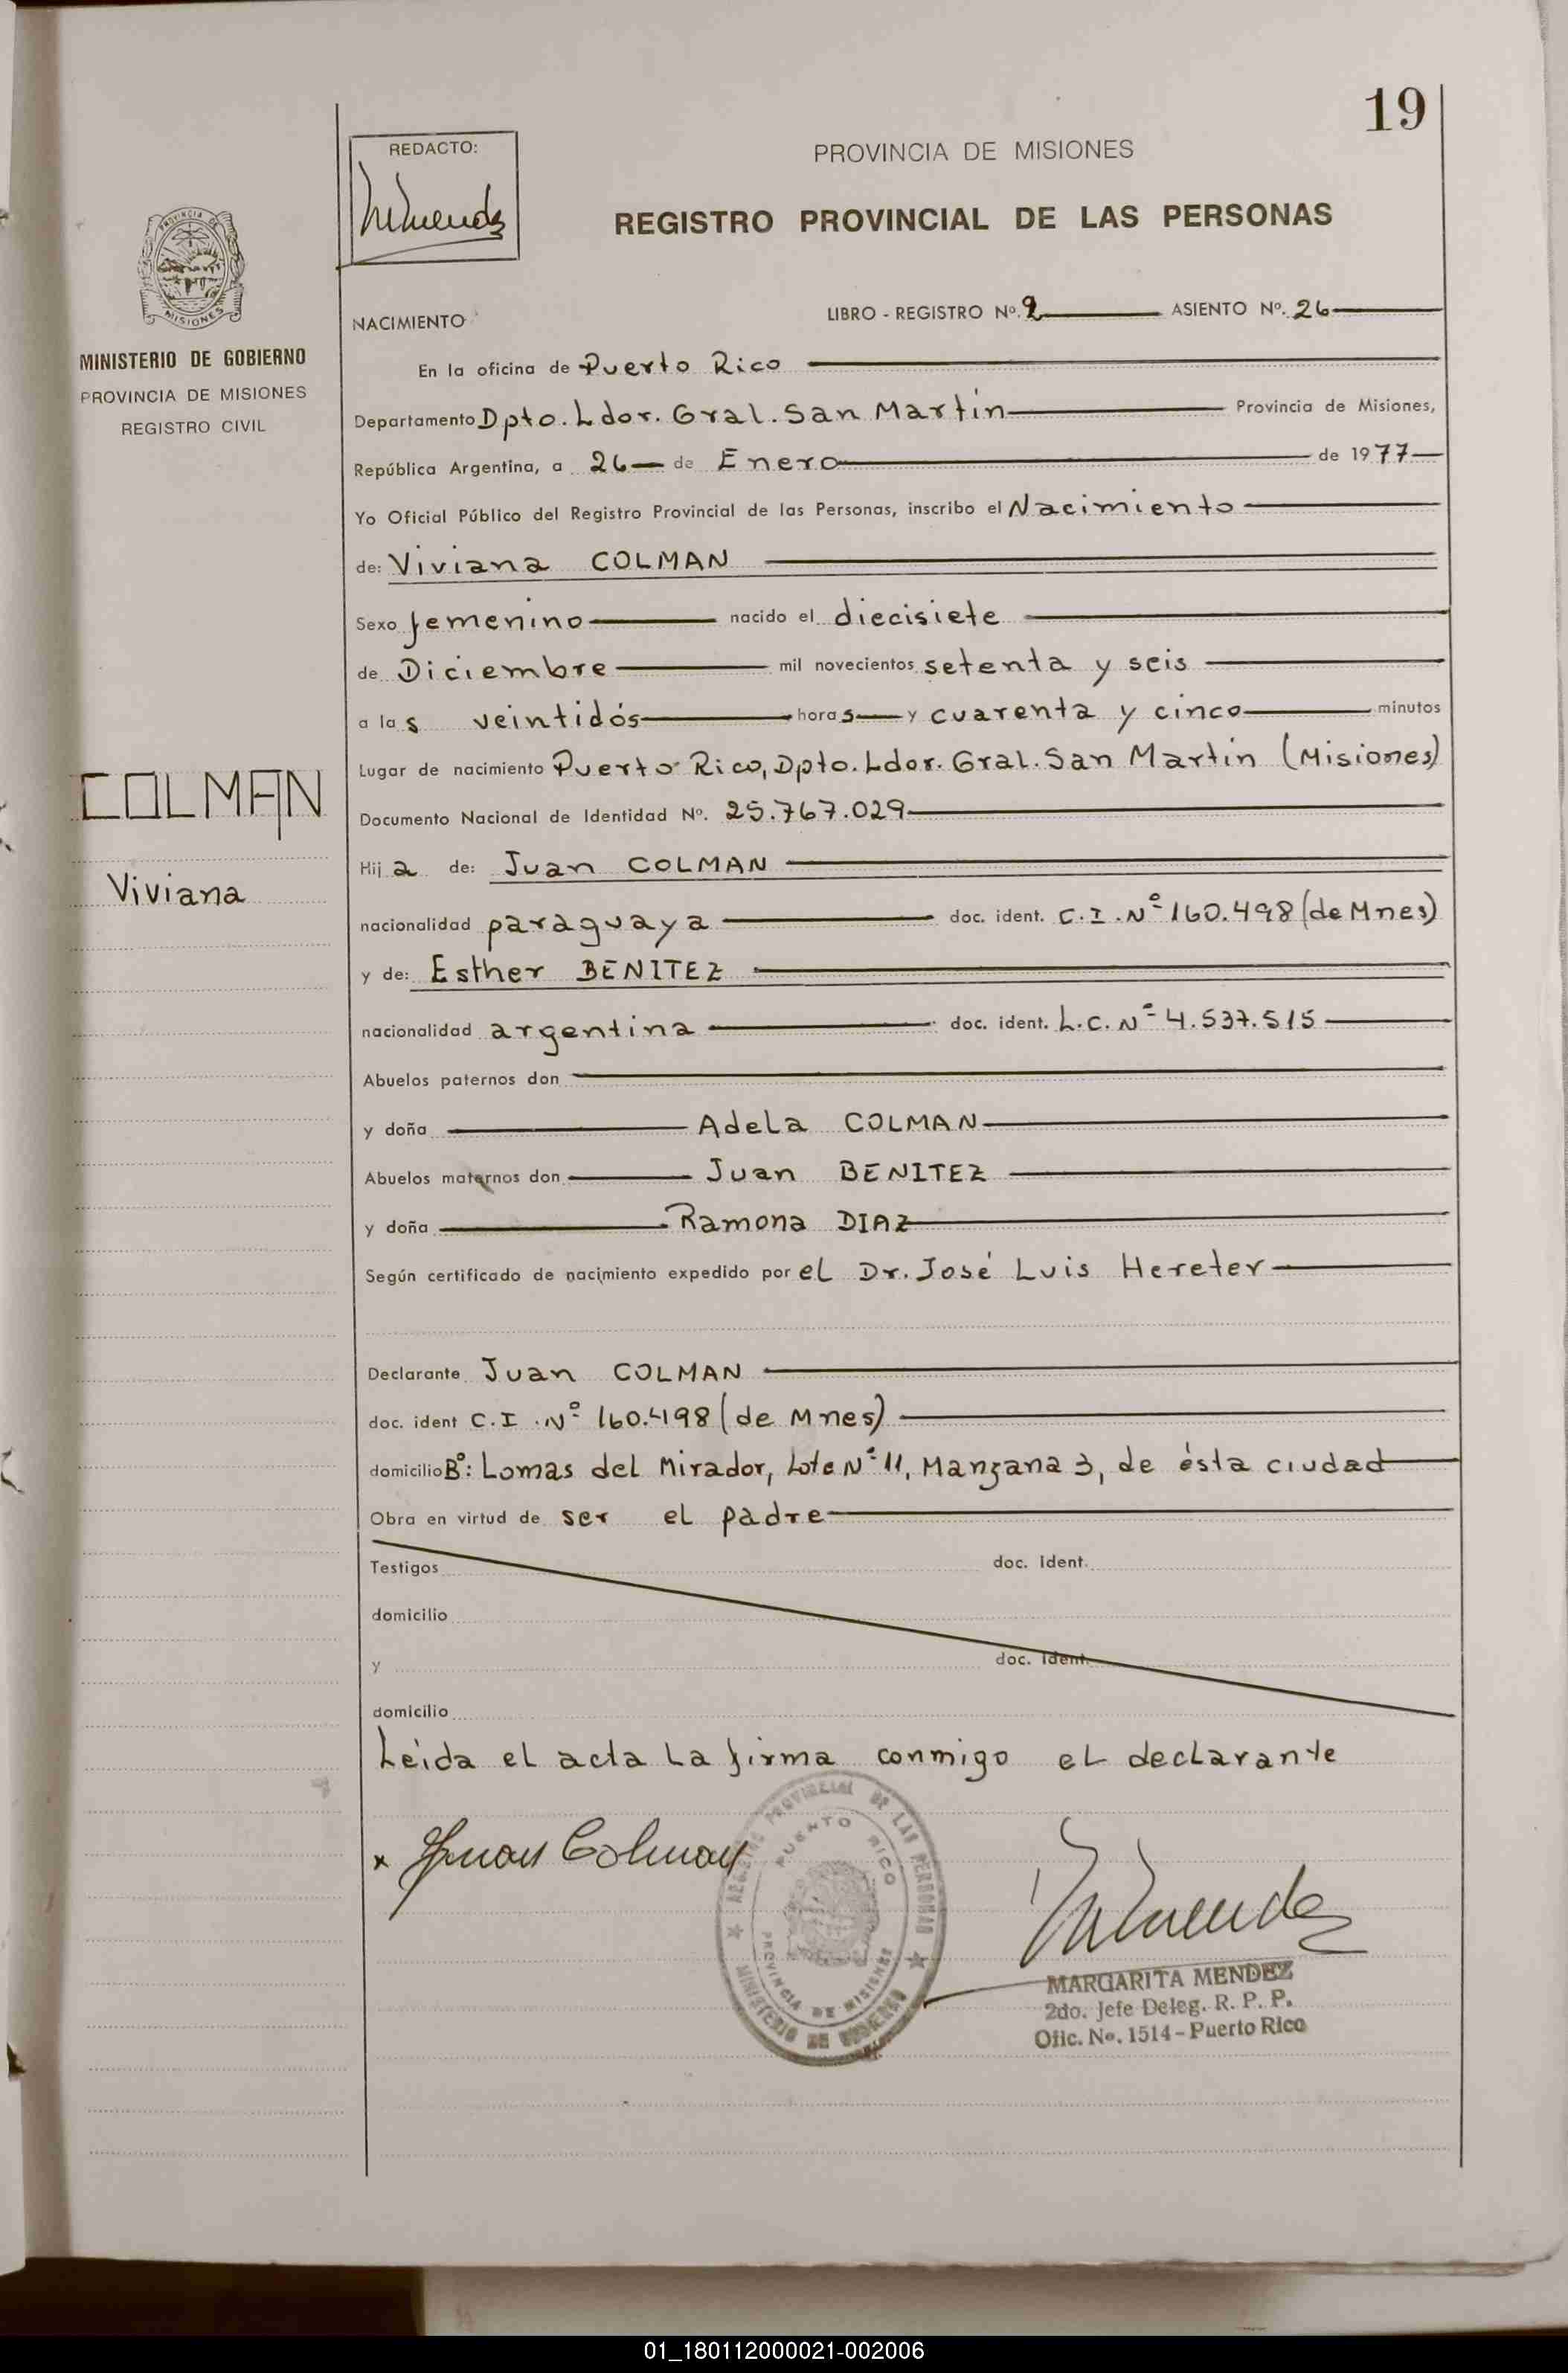 19
REDACTO:
PROVINCIA DE MISIONES
REGISTRO PROVINCIAL DE LAS PERSONAS
PROVINCIA DE
MISIONES
MINISTERIO DE GOBIERNO
PROVINCIA DE MISIONES
REGISTRO CIVIL
COLMAN
Viviana
NACIMIENTO LIBRO - REGISTRO Nº. 2 ASIENTO Nº. 26
En la oficina de Puerto Rico
Departamento Dpto. Ldor. Gral. San Martín Provincia de Misiones,
República Argentina, a 26 de Enero de 1977
Yo Oficial Público del Registro Provincial de las Personas, inscribo el Nacimiento
de: Viviana COLMAN
Sexo femenino nacido el diecisiete
de Diciembre mil novecientos setenta y seis
a las veintidós horas y cuarenta y cinco minutos
Lugar de nacimiento Puerto Rico, Dpto. Ldor. Gral. San Martín (Misiones)
Documento Nacional de Identidad Nº. 25.767.029
Hija de: Juan COLMAN
nacionalidad paraguaya doc. ident. C.I. Nº 160.498 (de Mnes)
y de: Esther BENITEZ
nacionalidad argentina doc. ident. L.C. Nº 4.537.515
Abuelos paternos don
y doña Adela COLMAN
Abuelos maternos don Juan BENITEZ
y doña Ramona DIAZ
Según certificado de nacimiento expedido por el Dr. José Luis Hereter
Declarante Juan COLMAN
doc. ident C.I. Nº 160.498 (de Mnes)
domicilio Bº: Lomas del Mirador, Lote Nº 11, Manzana 3, de ésta ciudad
Obra en virtud de ser el padre
Testigos doc. Ident.
domicilio
y doc. Ident.
domicilio
Leída el acta la firma conmigo el declarante
x Juan Colman
REGISTRO PROVINCIAL DE LAS PERSONAS
PUERTO RICO
PROVINCIA DE MISIONES
MINISTERIO DE GOBIERNO
MARGARITA MENDEZ
2do. Jefe Deleg. R. P. P.
Ofic. Nº. 1514 - Puerto Rico
01_180112000021-002006